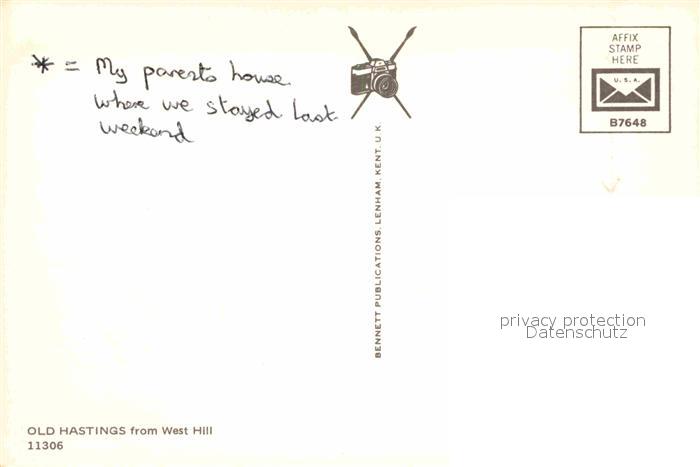 * = My parents house.
where we stayed last
weekend
AFFIX
STAMP
HERE
U.S.A.
B7648
BENNETT PUBLICATIONS, LENHAM, KENT, U.K.
privacy protection
Datenschutz
OLD HASTINGS from West Hill
11306